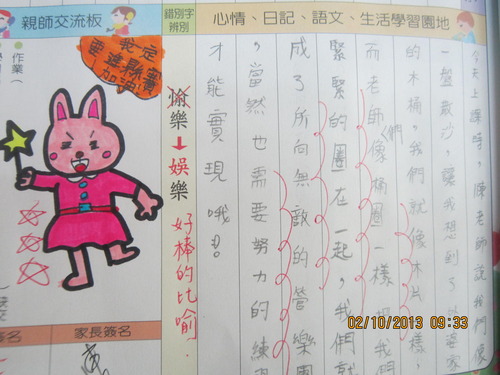 親師交流板
錯別字辨別
心情、日記、語文、生活學習園地
今天上課時，陳老師說我們像
一盤散沙，讓我想到了
的木桶，我們就像木片一樣，
而老師們像桶圈一樣，把我們
緊緊的圈在一起，我們就
成了所向無敵的管樂團
，當然也需要努力的練
才能實現哦!
愉樂→娛樂
好棒的比喻.
我定
要進縣賽
加油!
作業
家長簽名
02/10/2013 09:33